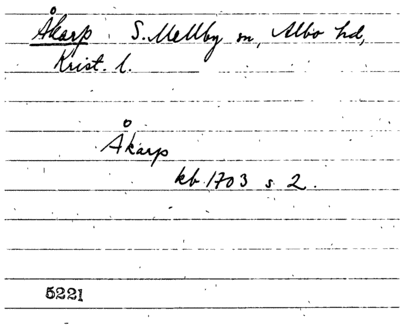 Åkarp S. Mellby sn, Albo hd,
Krist. l.
Åkarp
kb 1703 s 2.
5221